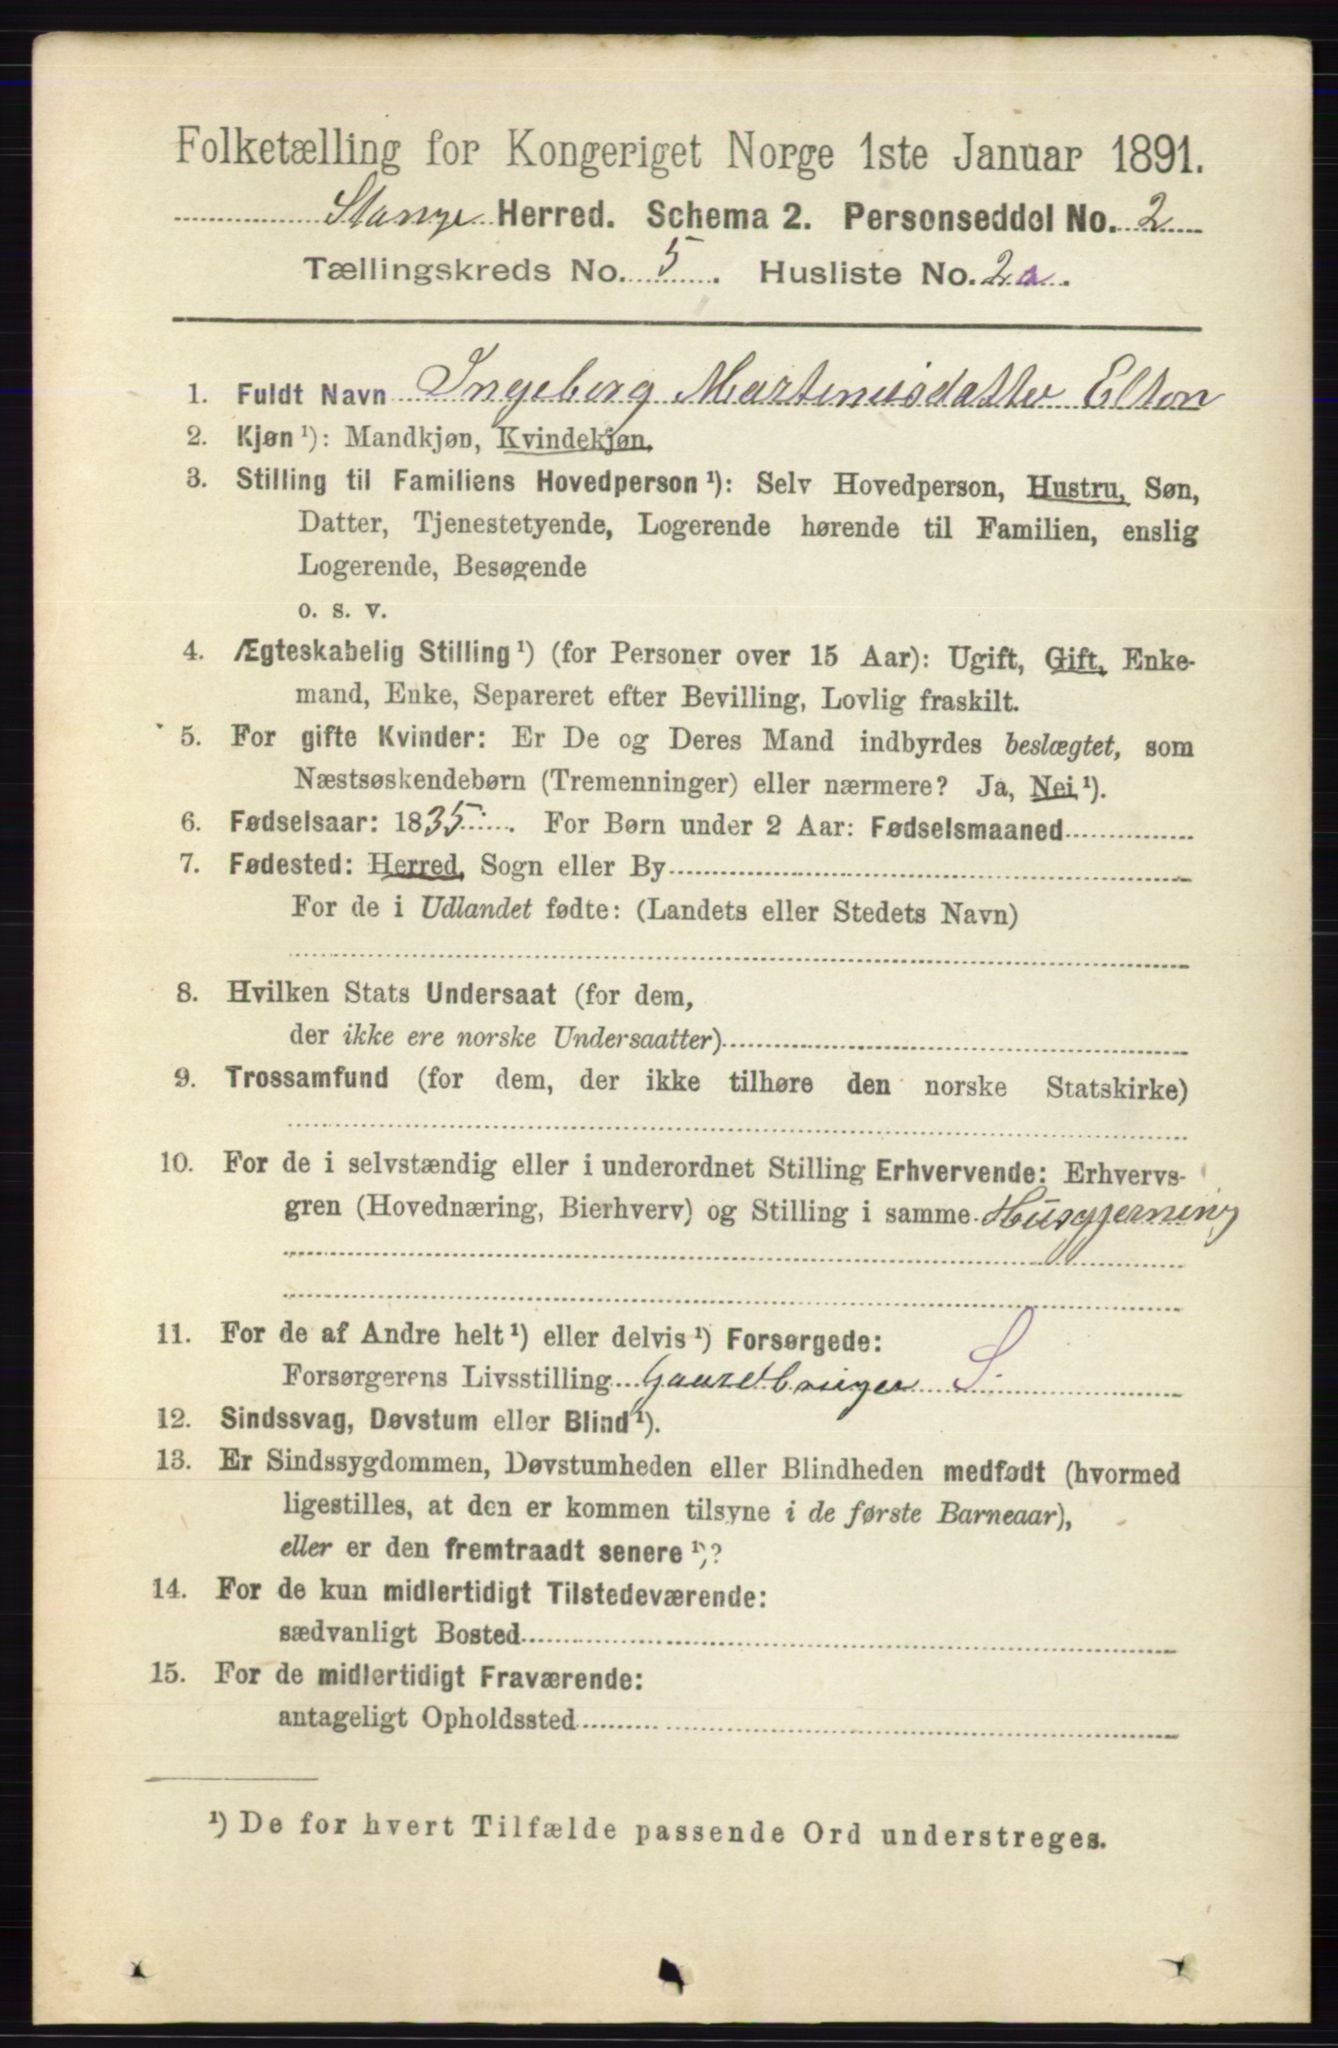 Folketælling for Kongeriget Norge 1ste Januar 1891.
Stange Herred. Schema 2. Personseddel No. 2
Tællingskreds No. 5. Husliste No. 2a.
1. Fuldt Navn Ingeborg Martinusdatter Elton
2. Kjøn ¹): Mandkjøn, Kvindekjøn.
3. Stilling til Familiens Hovedperson ¹): Selv Hovedperson, Hustru, Søn,
Datter, Tjenestetyende, Logerende hørende til Familien, enslig
Logerende, Besøgende
o. s. v.
4. Ægteskabelig Stilling ¹) (for Personer over 15 Aar): Ugift, Gift, Enke-
mand, Enke, Separeret efter Bevilling, Lovlig fraskilt.
5. For gifte Kvinder: Er De og Deres Mand indbyrdes beslægtet, som
Næstsøskendebørn (Tremenninger) eller nærmere? Ja, Nei ¹).
6. Fødselsaar: 1835. For Børn under 2 Aar: Fødselsmaaned
7. Fødested: Herred, Sogn eller By
For de i Udlandet fødte: (Landets eller Stedets Navn)
8. Hvilken Stats Undersaat (for dem,
der ikke ere norske Undersaatter)
9. Trossamfund (for dem, der ikke tilhøre den norske Statskirke)
10. For de i selvstændig eller i underordnet Stilling Erhvervende: Erhvervs-
gren (Hovednæring, Bierhverv) og Stilling i samme Husgjerning
11. For de af Andre helt ¹) eller delvis ¹) Forsørgede:
Forsørgerens Livsstilling Gaardbruger S.
12. Sindssvag, Døvstum eller Blind ¹).
13. Er Sindssygdommen, Døvstumheden eller Blindheden medfødt (hvormed
ligestilles, at den er kommen tilsyne i de første Barneaar),
eller er den fremtraadt senere ¹)?
14. For de kun midlertidigt Tilstedeværende:
sædvanligt Bosted
15. For de midlertidigt Fraværende:
antageligt Opholdssted
¹) De for hvert Tilfælde passende Ord understreges.